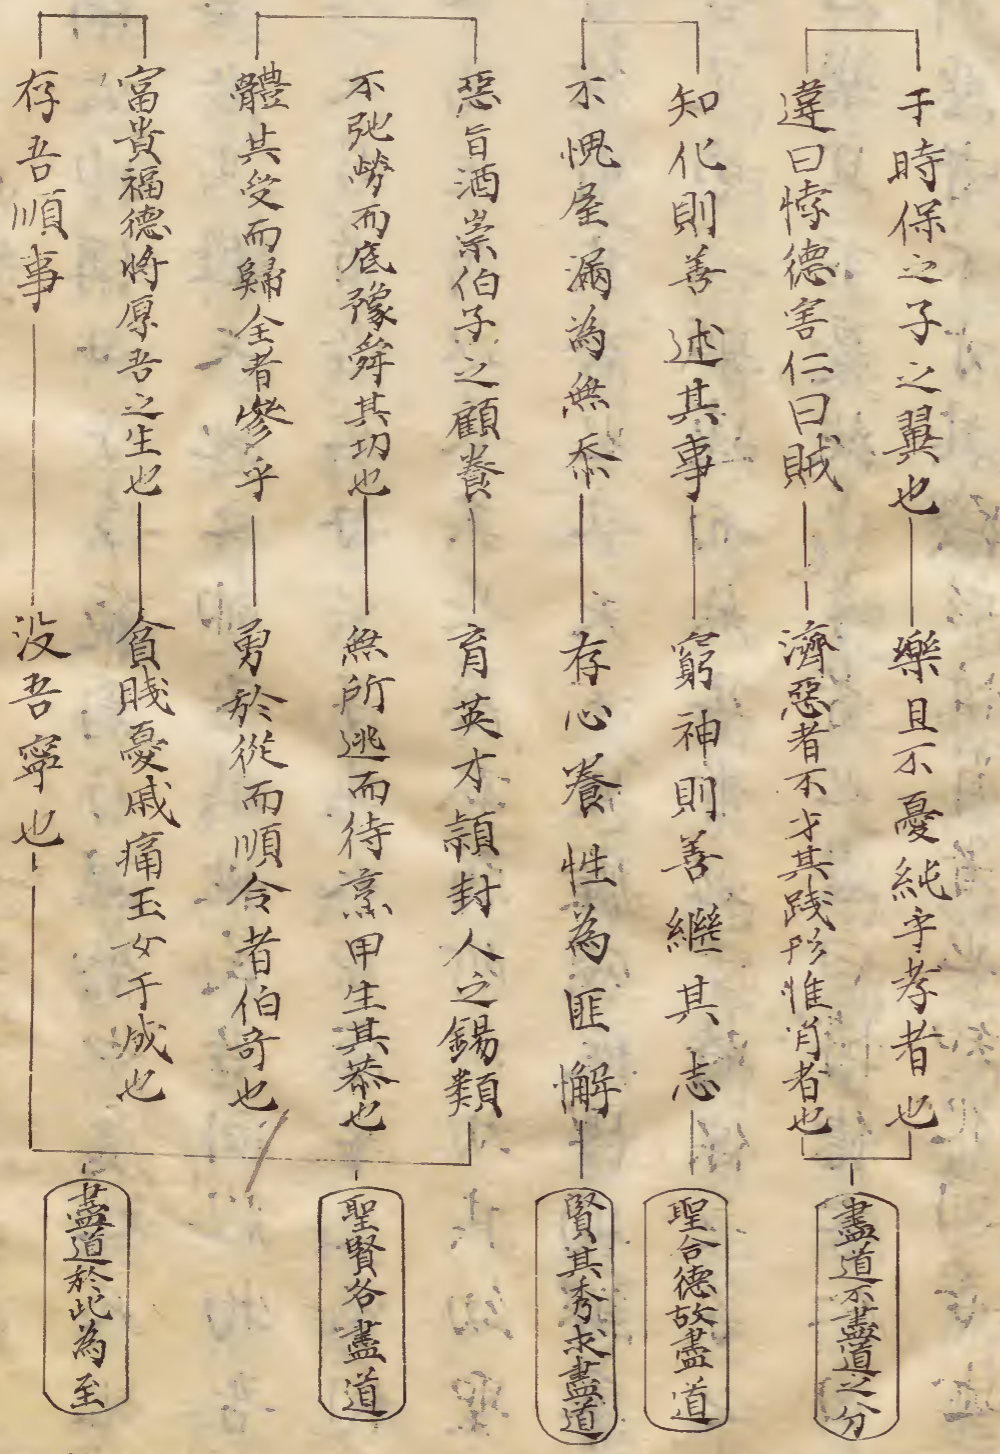 于時保之子之翼也
樂且不憂純乎孝者也
違曰悖德害仁曰賊
濟惡者不才其踐形惟肖者也
盡道不盡道之分
知化則善述其事
窮神則善繼其志
聖合德故盡道
不愧屋漏為無忝
存心養性為匪懈
賢其秀求盡道
惡旨酒崇伯子之顧養
育英才潁封人之錫類
不弛勞而底豫舜其功也
無所逃而待烹申生其恭也
體其受而歸全者參乎
勇於從而順令者伯奇也
聖賢各盡道
富貴福德將厚吾之生也
貧賤憂戚痛玉女于成也
存吾順事
沒吾寧也
盡道於此為至